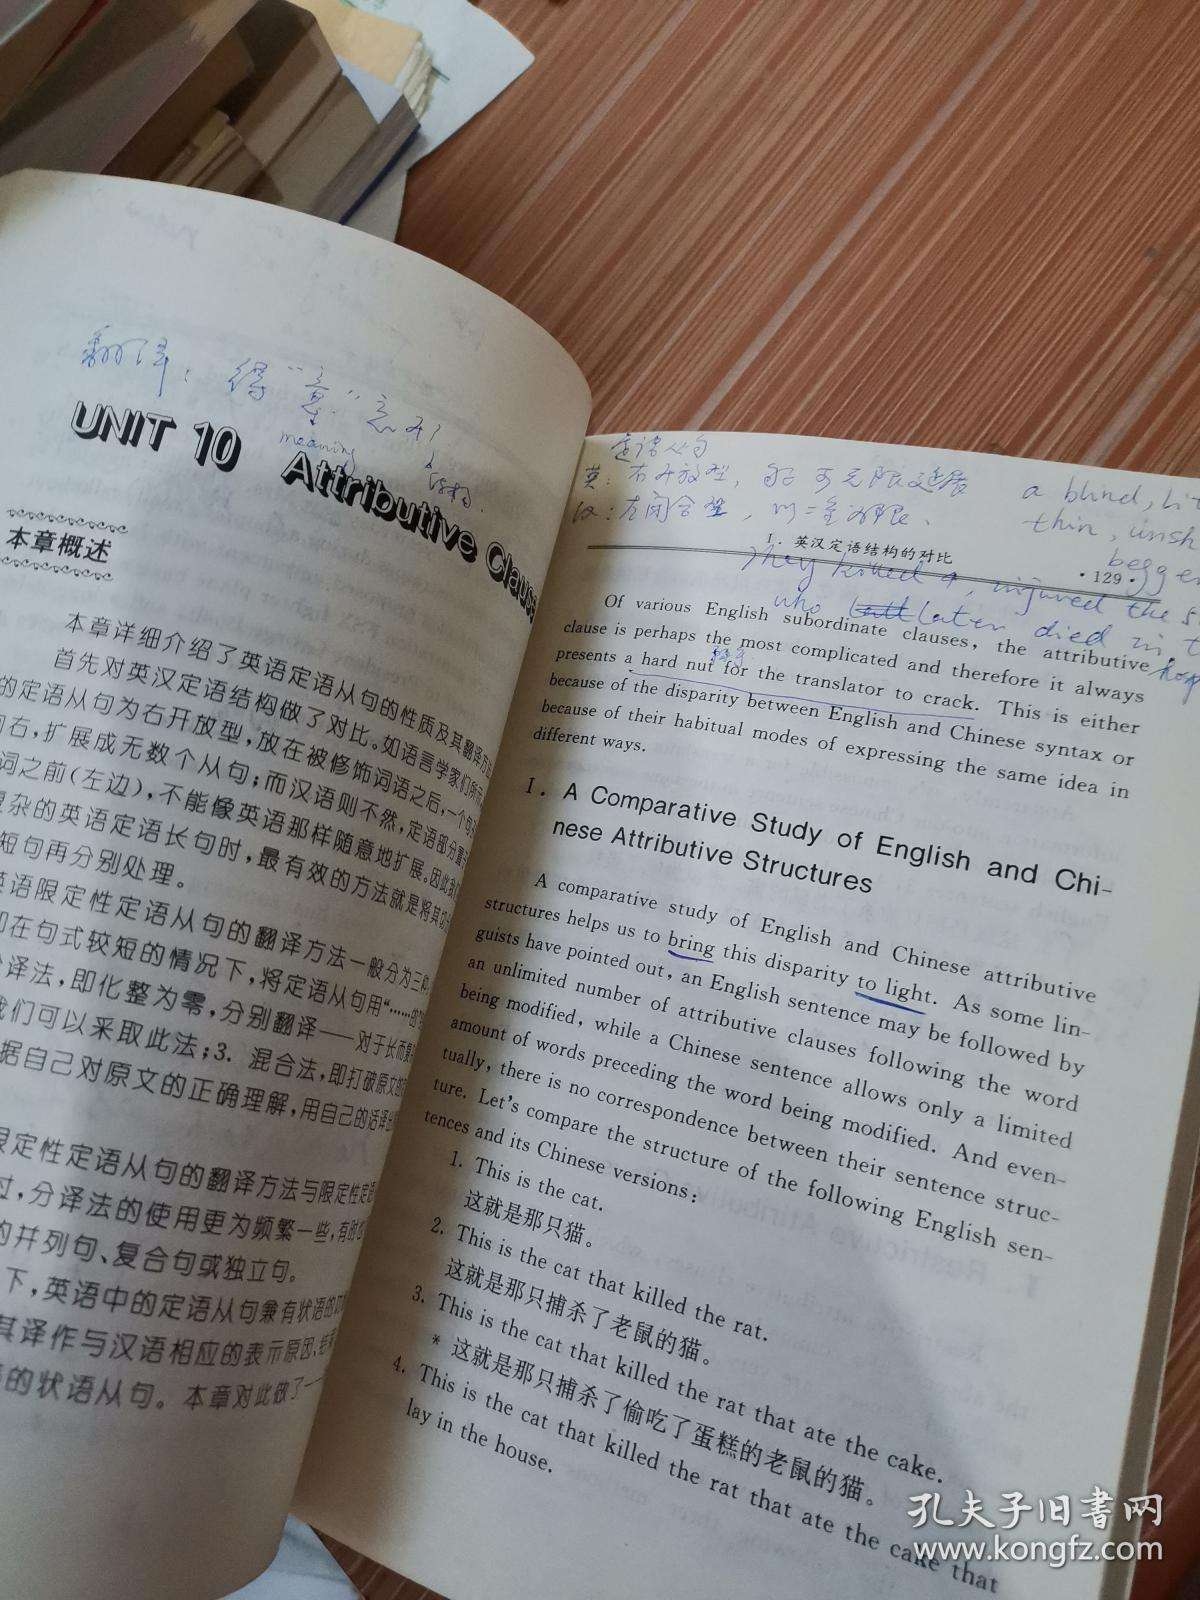 翻译：得"意"忘形
meaning
结构
UNIT 10 Attributive Clause
本章概述
本章详细介绍了英语定语从句的性质及其翻译方法
首先对英汉定语结构做了对比。如语言学家们所
的定语从句为右开放型，放在被修饰词语之后，一个句
向右，扩展成无数个从句；而汉语则不然，定语部分置
词之前（左边），不能像英语那样随意地扩展。因此我
复杂的英语定语长句时，最有效的方法就是将其切
短句再分别处理。
英语限定性定语从句的翻译方法一般分为三种
即在句式较短的情况下，将定语从句用“……的
分译法，即化整为零，分别翻译——对于长而复
我们可以采取此法；3. 混合法，即打破原文的
据自己对原文的正确理解，用自己的话译出
限定性定语从句的翻译方法与限定性定语
过，分译法的使用更为频繁一些，有时
的并列句、复合句或独立句。
下，英语中的定语从句兼有状语的
其译作与汉语相应的表示原因、结
的状语从句。本章对此做了一
定语从句
英：右开放型，可无限延展
汉：左闭合型，以二至为限、
a blind, li
thin, unsh
begge
They killed injured the s
who later died in t
hosp
Ⅰ. 英汉定语结构的对比
·129·
Of various English subordinate clauses, the attributive
clause is perhaps the most complicated and therefore it always
presents a hard nut for the translator to crack. This is either
because of the disparity between English and Chinese syntax or
because of their habitual modes of expressing the same idea in
different ways.
Ⅰ. A Comparative Study of English and Chi-
nese Attributive Structures
A comparative study of English and Chinese attributive
structures helps us to bring this disparity to light. As some lin-
guists have pointed out, an English sentence may be followed by
an unlimited number of attributive clauses following the word
being modified, while a Chinese sentence allows only a limited
amount of words preceding the word being modified. And even-
tually, there is no correspondence between their sentence struc-
ture. Let's compare the structure of the following English sen-
tences and its Chinese versions:
1. This is the cat.
这就是那只猫。
2. This is the cat that killed the rat.
这就是那只捕杀了老鼠的猫。
3. This is the cat that killed the rat that ate the cake.
* 这就是那只捕杀了偷吃了蛋糕的老鼠的猫。
4. This is the cat that killed the rat that ate the cake that
lay in the house.
孔夫子旧书网
www.kongfz.com